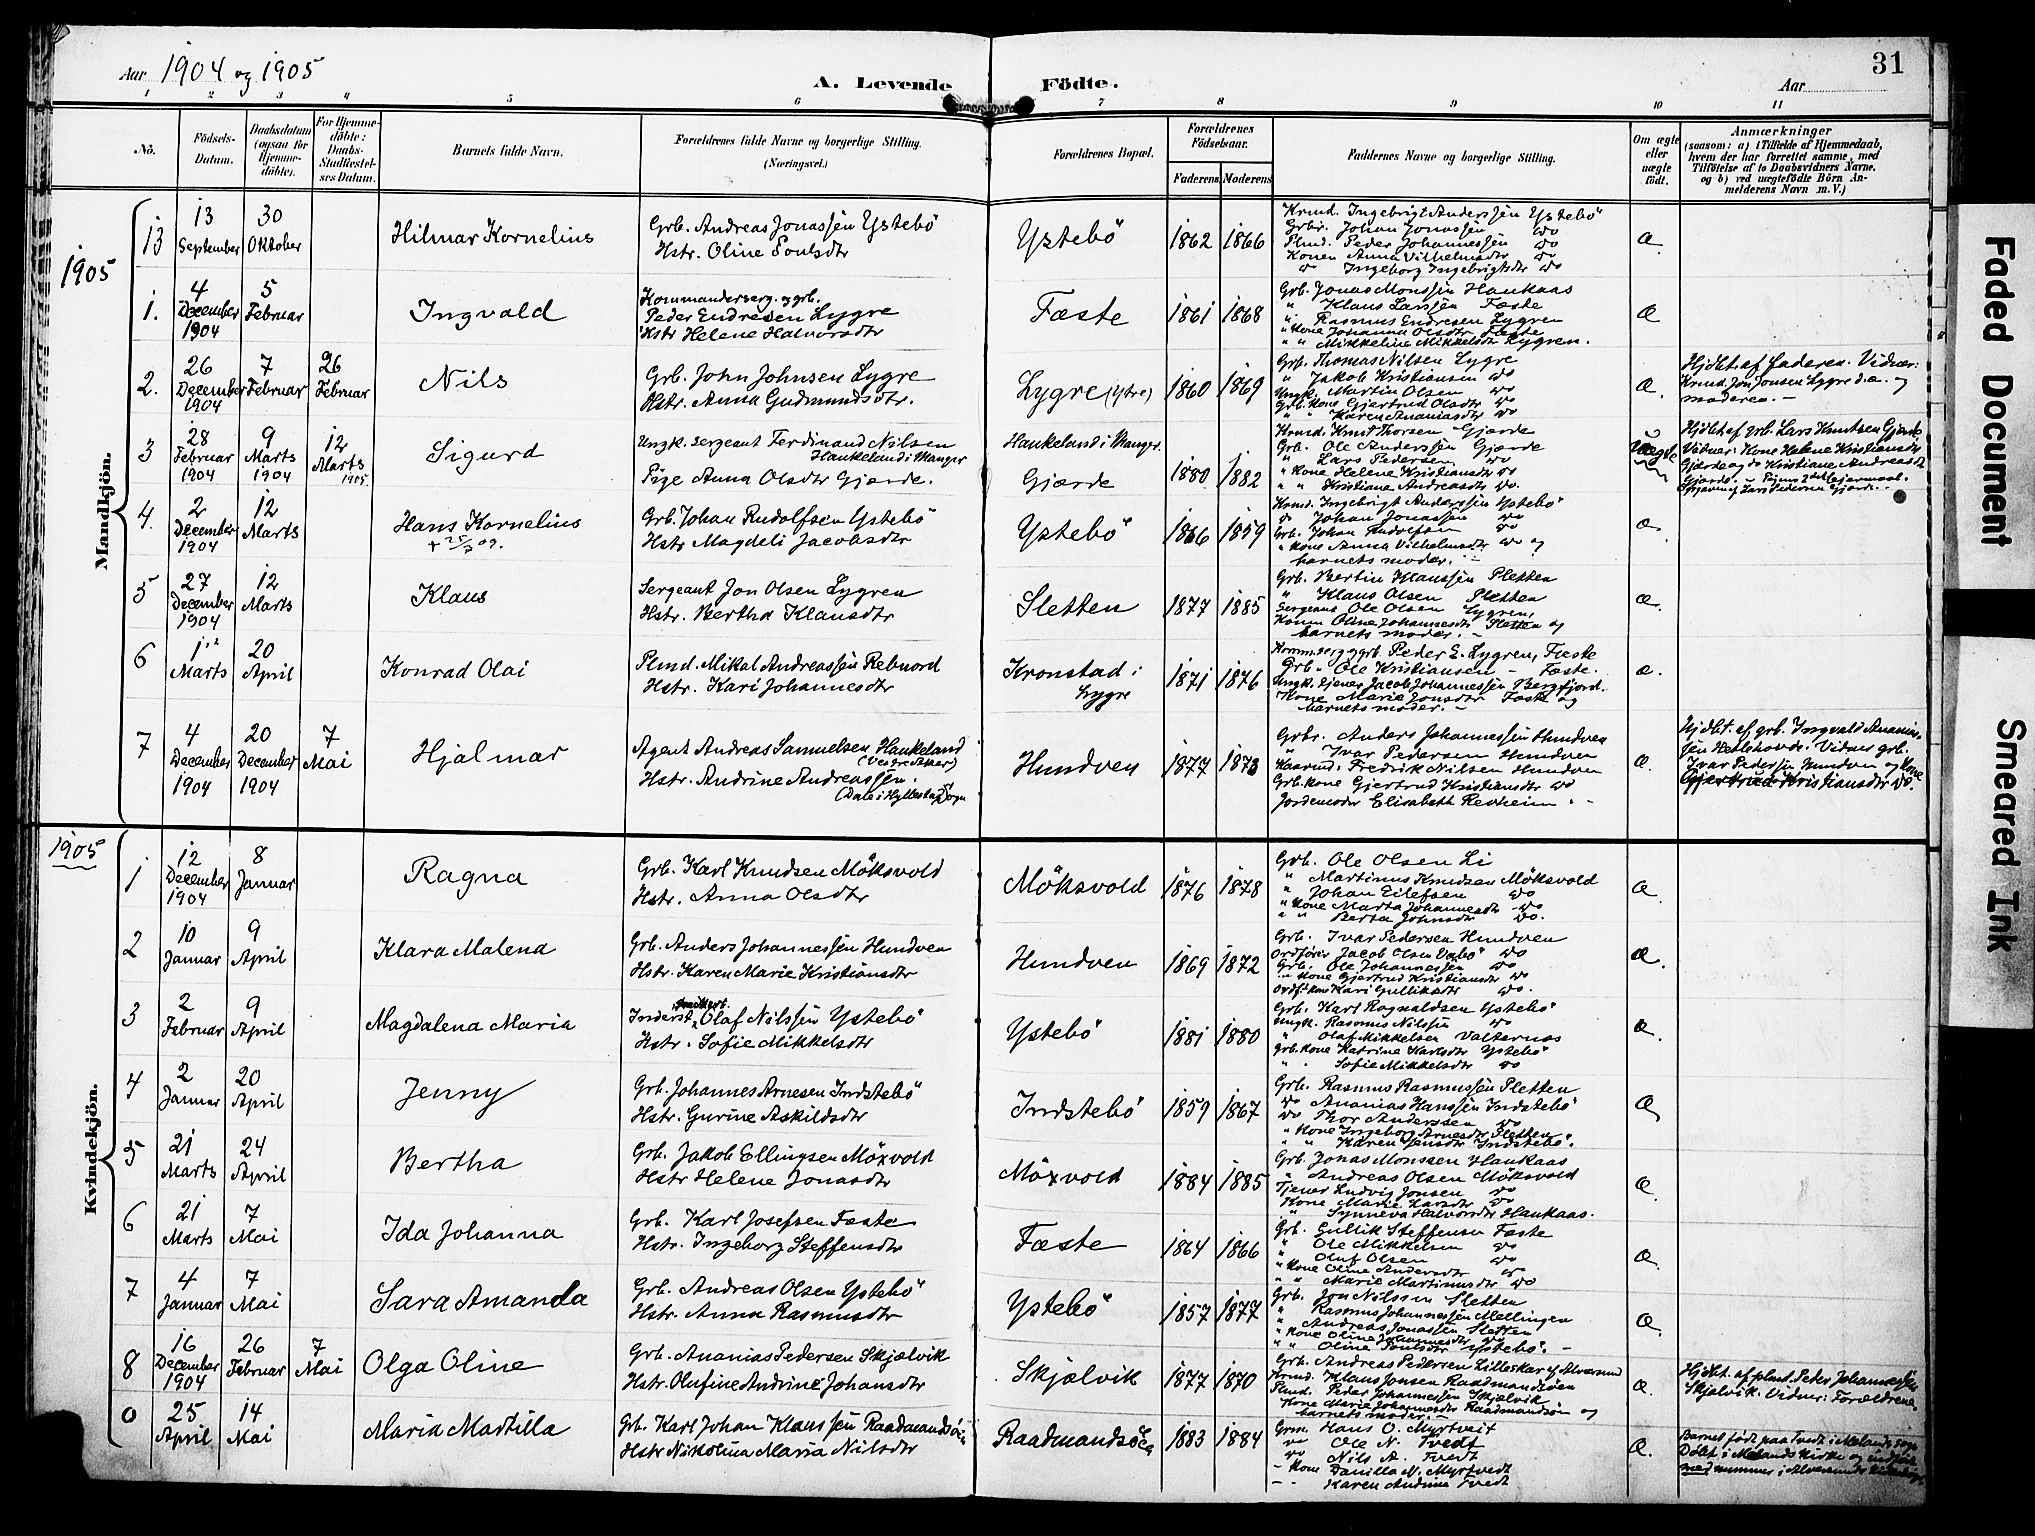 Aar 1904 og 1905
A. Levende Födte.
Aar
31
1 2 3 4 5 6 7 8 9 10 11
No.
Födsels-Datum.
Daabsdatum (ogsaa for Hjemme-döbte).
For Hjemme-döbte: Daabs-Stadfæstel-ses Datum.
Barnets fulde Navn.
Forældrenes fulde Navne og borgerlige Stilling. (Næringsvei.)
Forældrenes Bopæl.
Forældrenes Födselsaar.
Faderens Moderens
Faddernes Navne og borgerlige Stilling.
Om ægte eller uægte födt.
Anmærkninger
(saasom: a) i Tilfælde af Hjemmedaab,
hvem der har forrettet samme, med
Tilföielse af to Daabsvidners Navne,
og b) ved uægtefödte Börn An-
melderens Navn m. V.)
Mandkjön.
13 13 September 30 Oktober Hilmar Kornelius
Grb. Andreas Jonassen Ystebö
Hstr. Oline Poulsdtr
Ystebö 1862 1866
Krmd. Ingebrigt Anderssen Ystebö
Grbr. Johan Jonassen do
Plmd. Peder Johannessen do
Konen Anna Vilhelmsdtr do
do Ingeborg Ingebrigtsdtr do
Æ.
1905
1. 4 December 1904 5 Februar Ingvald
Kommandersерg. og grb.
Peder Endresen Lygre
Hstr Helene Halvorsdtr
Fæste 1861 1868
Grb. Jonas Monssen Haukaas
" Klaus Larssen Fæste
" Rasmus Endresen Lygren
" Kone Johanna Olsdtr Fæste
" " Mikkeline Mikkelsdtr Lygren.
Æ
2. 26 December 1904 7 Februar 26 Februar Nils
Grb. John Johnsen Lygre
Hstr. Anna Gudmundsdtr.
Lygre (ytre) 1860 1869
Grb. Thomas Nilsen Lygre
" Jakob Kristiansen do
Ungk. Martin Olsen do
Grb. kone Gjertrud Olsdtr do
" " Karen Ananiasdtr do
Æ.
Hjdbt. af Faderen. Vidner:
Krmd. Jon Jonsen Lygre d.æ. og
moderen. -
3 28 Februar 1904 9 Marts 1904 12 Marts 1905 Sigurd
Ungk. sergeant Ferdinand Nilsen
Haukeland i Manger
Pige Anna Olsdtr Gjærde.
Haukeland i Manger.
Gjærde 1880 1882
Krmd. Knut Thorsen Gjærde
Grb. Ole Anderssen Gjærde
" Lars Pedersen do
" Kone Helene Kristiansdtr do
" " Kristiane Andreasdtr do.
Uægte
Hjdbt. af grb. Lars Knutsen Gjærde
Vidner: Kone Helene Kristiansdtr
Gjærde og do Kristiane Andreasdtr
Gjærde.
4. 2 December 1904 12 Marts Hans Kornelius
Grb. Johan Rudolfsen Ystebö
Hstr Magdeli Jacobsdtr
Ystebö 1866 1859
Krmd. Ingebrigt Anderssen Ystebö
do Johan Jonassen do
Grb. Johan Rudolfsen do
" Kone Anna Vilhelmsdtr do og
barnets moder. -
Æ.
5 27 December 1904 12 Marts Klaus
Sergeant Jon Olsen Lygren
Hstr. Bertha Klausdtr
Sletten 1877 1885
Grb. Bertin Hanssen Sletten
" Klaus Olsen Sletten
Sergeant Ole Olsen Lygren,
Konen Oline Johannesdtr Sletten og
barnets moder. -
Æ.
6 1 Marts 20 April Konrad Olai
Plmd. Mikal Andreassen Rebnord
Hstr. Kari Johannesdtr
Kronstad i Lygre 1871 1876
Komm.serg. og grb. Peder E. Lygren, Fæste
Grb. Ole Kristiansen - Fæste.
Ungk. tjener Jacob Johannessen Bergfjord.
Kone Marie Jonsdtr Fæste og
barnets moder. -
Æ.
7 4 December 1904 20 December 1904 7 Mai Hjalmar
Agent Andreas Samuelsen Haukeland
(Vestre Aker)
Hstr. Andrine Andreassen.
(Dale i Hyllestad Sogn
Hundven 1877 1873
Grbr. Anders Johannessen Hundven
" Ivar Pedersen Hundven
Haarmd. Fredrik Nilsen Hundven
Grb. kone Gjertrud Kristiansdtr do
Jordemoder Elisabeth Revheim. -
Æ.
Hjdbt. af grb. Ingvald Ananias-
sen Hetlehovde. Vidner grb.
Ivar Pedersen Hundven og kone
Gjertrud Kristiansdtr do.
1905
Kvindekjön.
1 12 December 1904 8 Januar Ragna
Grb. Karl Knudsen Möksvold
Hstr. Anna Olsdtr
Möksvold 1876 1878
Grb. Ole Olsen Li
" Martinus Knudsen Möksvold
" Johan Eilefsen do
" Kone Marta Johannesdtr do
" " Berta Johnsdtr do.
Æ.
2 10 Januar 9 April Klara Malena
Grb. Anders Johannessen Hundven
Hstr. Karen Marie Kristiansdtr
Hundven 1869 1872
Grb. Ivar Pedersen Hundven
Ordförer Jacob Olsen Vabö do
Grb. Ole Johannessen do
" Kone Gjertrud Kristiansdtr do
Ordf. kone Kari Gulliksdtr do.
Æ.
3 2 Februar 9 April Magdalena Maria
Inderst, Olaf Nilssen Ystebö
Hstr. Sofie Mikkelsdtr
Ystebö 1881 1880
Grb. Karl Ragnaldsen Ystebö
Ungk. Rasmus Nilssen do
" Olaf Mikkelsen Valternæs
Grb. kone Katrine Karlsdtr Ystebö
" " Sofie Mikkelsdtr do
Æ.
4 2 Januar 20 April Jenny
Grb. Johannes Arnesen Indstebö
Hstr. Gurine Askildsdtr
Indstebö 1859 1867
Grb. Rasmus Rasmussen Sletten
do Ananias Hanssen Indstebö
do Thor Anderssen do
" Kone Ingeborg Arnesdtr Sletten
" " Karen Jensdtr Indstebö.
Æ
5 21 Marts 24 April Bertha
Grb. Jakob Ellingsen Möxvold
Hstr Helene Jonasdtr
Möxvold 1884 1885
Grb. Jonas Monssen Haukaas
" Andreas Olsen Möksvold
Tjener Ludvig Jonsen do
Kone Marie Larsdtr do
" Synneva Halvorsdtr Haukaas.
Æ.
6 21 Marts 7 Mai Ida Johanna
Grb. Karl Josefsen Fæste
Hstr. Ingeborg Steffensdtr
Fæste 1864 1866
Grb. Gullik Steffensen Fæste
" Ole Mikkelsen do
" Oluf Olsen do
" Kone Oline Andersdtr do
" " Marie Martinusdtr do
Æ.
7 4 Januar 7 Mai Sara Amanda
Grb. Andreas Olsen Ystebö
Hstr. Anna Rasmusdtr
Ystebö 1857 1877
Grb. Jon Nilssen Sletten
" Rasmus Johannessen Mellingen
" Andreas Jonassen Sletten
" Kone Oline Johannesdtr do
" " Oline Poulsdtr Ystebö. -
Æ.
8 16 December 1904 26 Februar 7 Mai Olga Oline
Grb. Ananias Pedersen Skjælvik
Hstr. Olufine Andrine Johansdtr
Skjælvik 1877 1870
Grb. Andreas Pedersen Lilleskar af Alversund
Krmd. Klaus Jonsen Raadmandsöen
Plmd. Peder Johannessen Skjælvik
Kone Marie Johannesdtr Raadmandsöen og
barnets moder. -
Æ.
Hjdbt. af plmd. Peder Johannessen
Skjælvik. Vidner: Forældrene.
0 25 April 14 Mai Maria Martilla
Grb. Karl Johan Klaussen Raadmandsöen
Hstr Nikolina Maria Nilsdtr
Raadmandsöen 1883 1884
Grm. Hans O. Myrtveit
do Ole N. Tvedt
do Nils A. Tvedt
- Kone Danilla N. Myrtvedt
- - Karen Andrina Tvedt
Æ.
Barnet födt paa Tvedt i Mælands sogn
Döbt i Mælands Kirke og indfört
med nummer i Alversunds Kirkebog
Faded Document
Smeared Ink